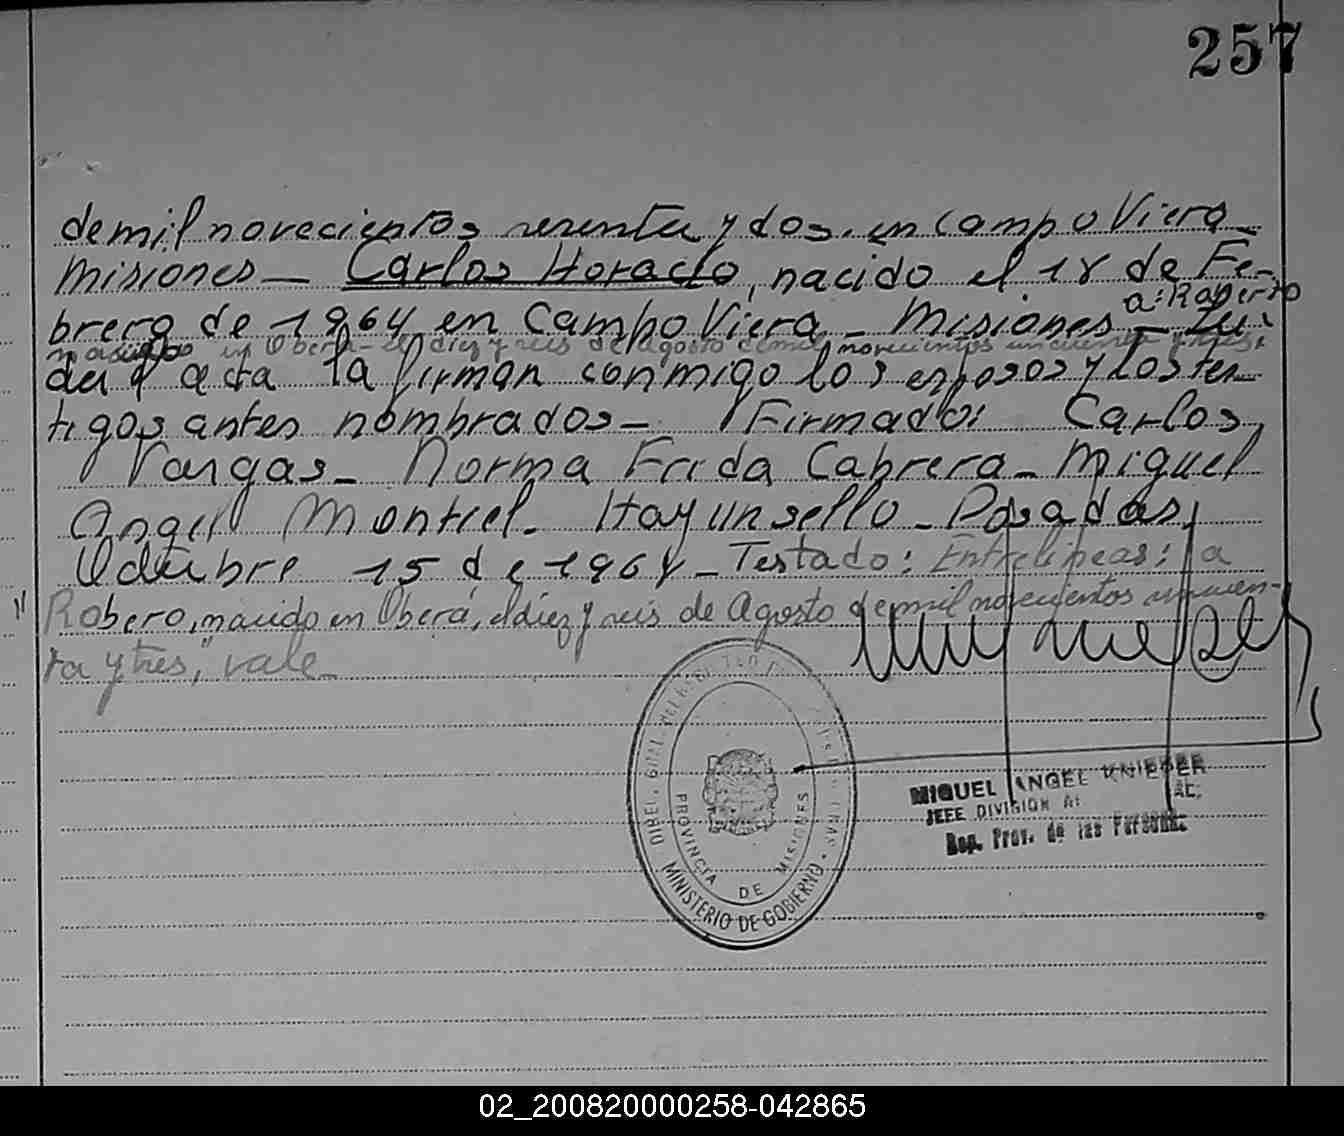 257
de mil novecientos sesenta y dos, en Campo Viera
Misiones — Carlos Horacio, nacido el 18 de Fe-
a: Roberto
brero de 1964 en Campo Viera — Misiones —
nacido en Oberá el diez y seis de Agosto de mil novecientos cincuenta y tres,
acta la firman conmigo los esposos y los tes-
tigos antes nombrados — Firmado: Carlos
Vargas — Norma Frida Cabrera — Miguel
Angel Montiel. Hay un sello — Posadas,
Octubre 15 de 1964 — Testado: Entrelíneas: a
" Robero, nacido en Oberá, el diez y seis de Agosto de mil novecientos cincuen-
ta y tres," vale —
PROVINCIA DE MISIONES
MINISTERIO DE GOBIERNO
MIQUEL ANGEL KNIEPER
JEFE DIVISION
Rep. Prov. de las Personas
02_200820000258-042865